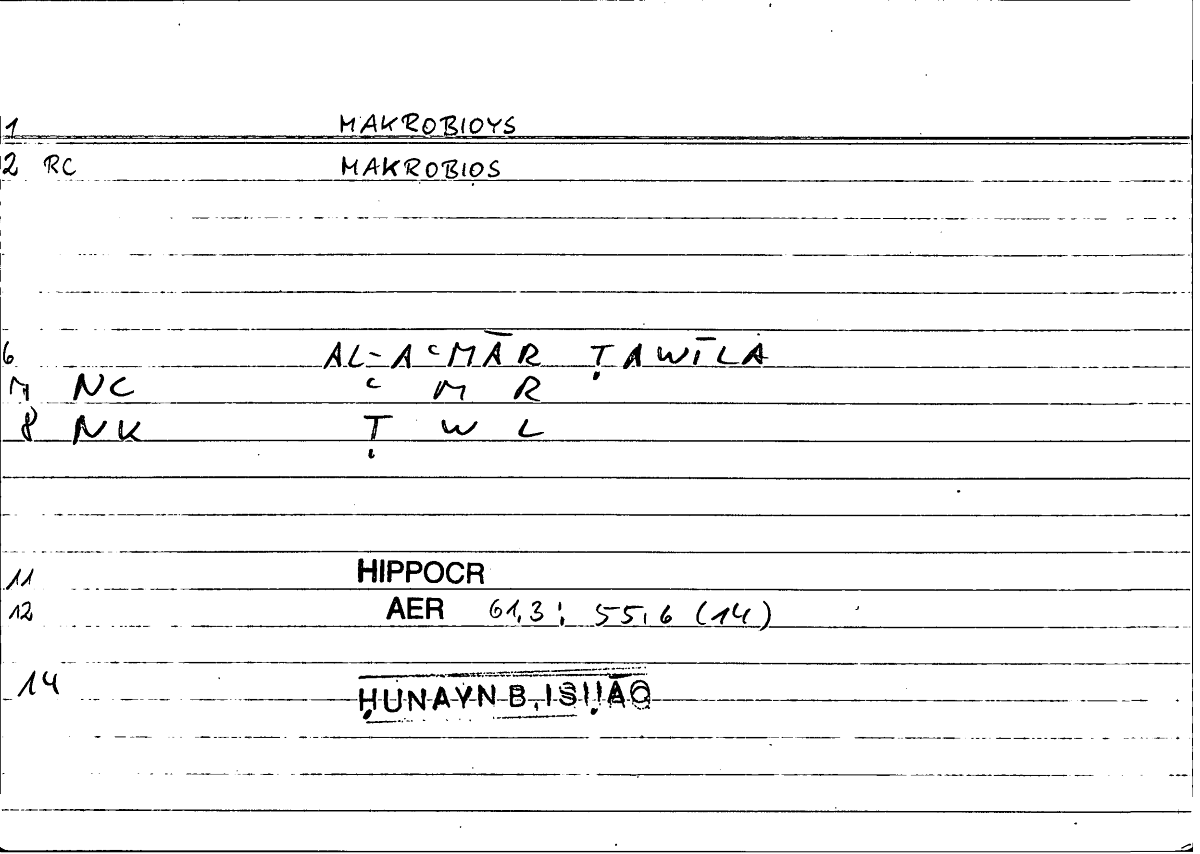 1 MAKROBIOYS
2 RC MAKROBIOS
6 AL-AᶜMĀR ṬAWĪLA
7 NC ᶜ M R
8 NK Ṭ W L
11 HIPPOCR
12 AER 61,3; 55,6 (14)
14 ḤUNAYN B. ISḤĀQ